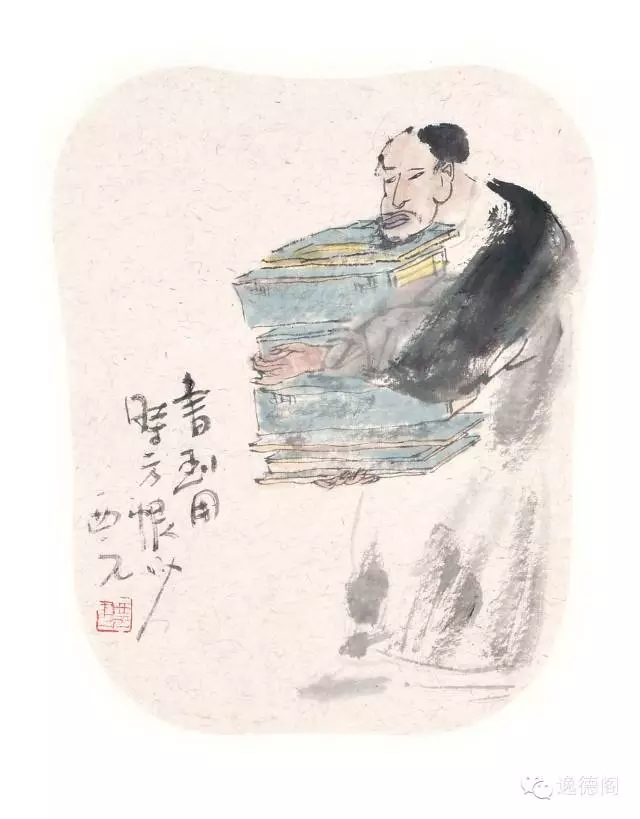 书到用
时方恨少
西元
逸德阁